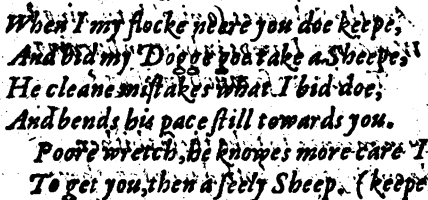 When I my flocke neere you doe keepe,
And bid my Dogge goe take a Sheepe,
He cleane mistakes what I bid doe,
And bends his pace still towards you.
Poore wretch, he knowes more care I
To get you, then a seely Sheep. (keepe